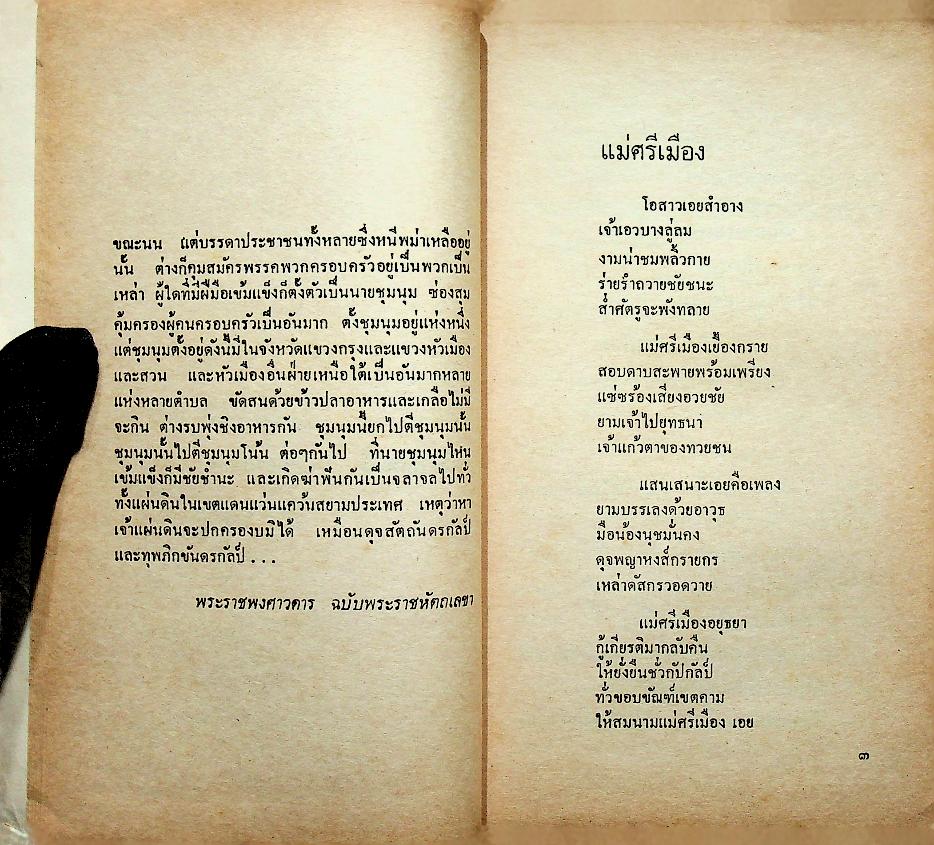 ขณะนน แต่บรรดาประชาชนทั้งหลายซึ่งหนีพม่าเหลืออยู่
นั้น ต่างก็คุมสมัครพรรคพวกครอบครัวอยู่เป็นพวกเป็น
เหล่า ผู้ใดที่มีฝีมือเข้มแข็งก็ตั้งตัวเป็นนายชุมนุม ซ่องสุม
คุ้มครองผู้คนครอบครัวเป็นอันมาก ตั้งชุมนุมอยู่แห่งหนึ่ง
แต่ชุมนุมตั้งอยู่ดังนี้มีในจังหวัดแขวงกรุงและแขวงหัวเมือง
และสวน และหัวเมืองอื่นฝ่ายเหนือใต้เป็นอันมากหลาย
แห่งหลายตำบล ขัดสนด้วยข้าวปลาอาหารและเกลือไม่มี
จะกิน ต่างรบพุ่งชิงอาหารกัน ชุมนุมนี้ยกไปตีชุมนุมนั้น
ชุมนุมนั้นไปตีชุมนุมโน้น ต่อๆกันไป ที่นายชุมนุมไหน
เข้มแข็งก็มีชัยชำนะ และเกิดฆ่าฟันกันเป็นจลาจลไปทั่ว
ทั้งแผ่นดินในเขตแดนแว่นแคว้นสยามประเทศ เหตุว่าหา
เจ้าแผ่นดินจะปกครองบมิได้ เหมือนดุจสัตถันดรกัลป์
และทุพภิกขันดรกัลป์ . . .
พระราชพงศาวดาร ฉบับพระราชหัตถเลขา
แม่ศรีเมือง
โอสาวเอยสำอาง
เจ้าเอวบางลู่ลม
งามน่าชมพลิ้วกาย
ร่ายรำถวายชัยชนะ
ส่ำศัตรูจะพังทลาย
แม่ศรีเมืองเยื้องกราย
สอบดาบสะพายพร้อมเพรียง
แซ่ซร้องเสียงอวยชัย
ยามเจ้าไปยุทธนา
เจ้าแก้วตาของทวยชน
แสนเสนาะเอยคือเพลง
ยามบรรเลงด้วยอาวุธ
มือน้องนุชมั่นคง
ดุจพญาหงส์กรายกร
เหล่าดัสกรวอดวาย
แม่ศรีเมืองอยุธยา
กู้เกียรติมากลับคืน
ให้ยั่งยืนชั่วกัปกัลป์
ทั่วขอบขัณฑ์เขตคาม
ให้สมนามแม่ศรีเมือง เอย
๓